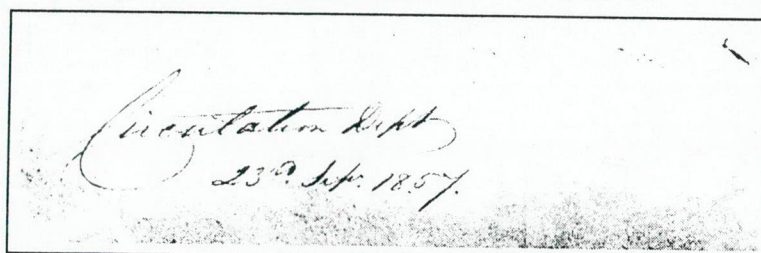 Circulation Dept
23rd. Sep. 1857.